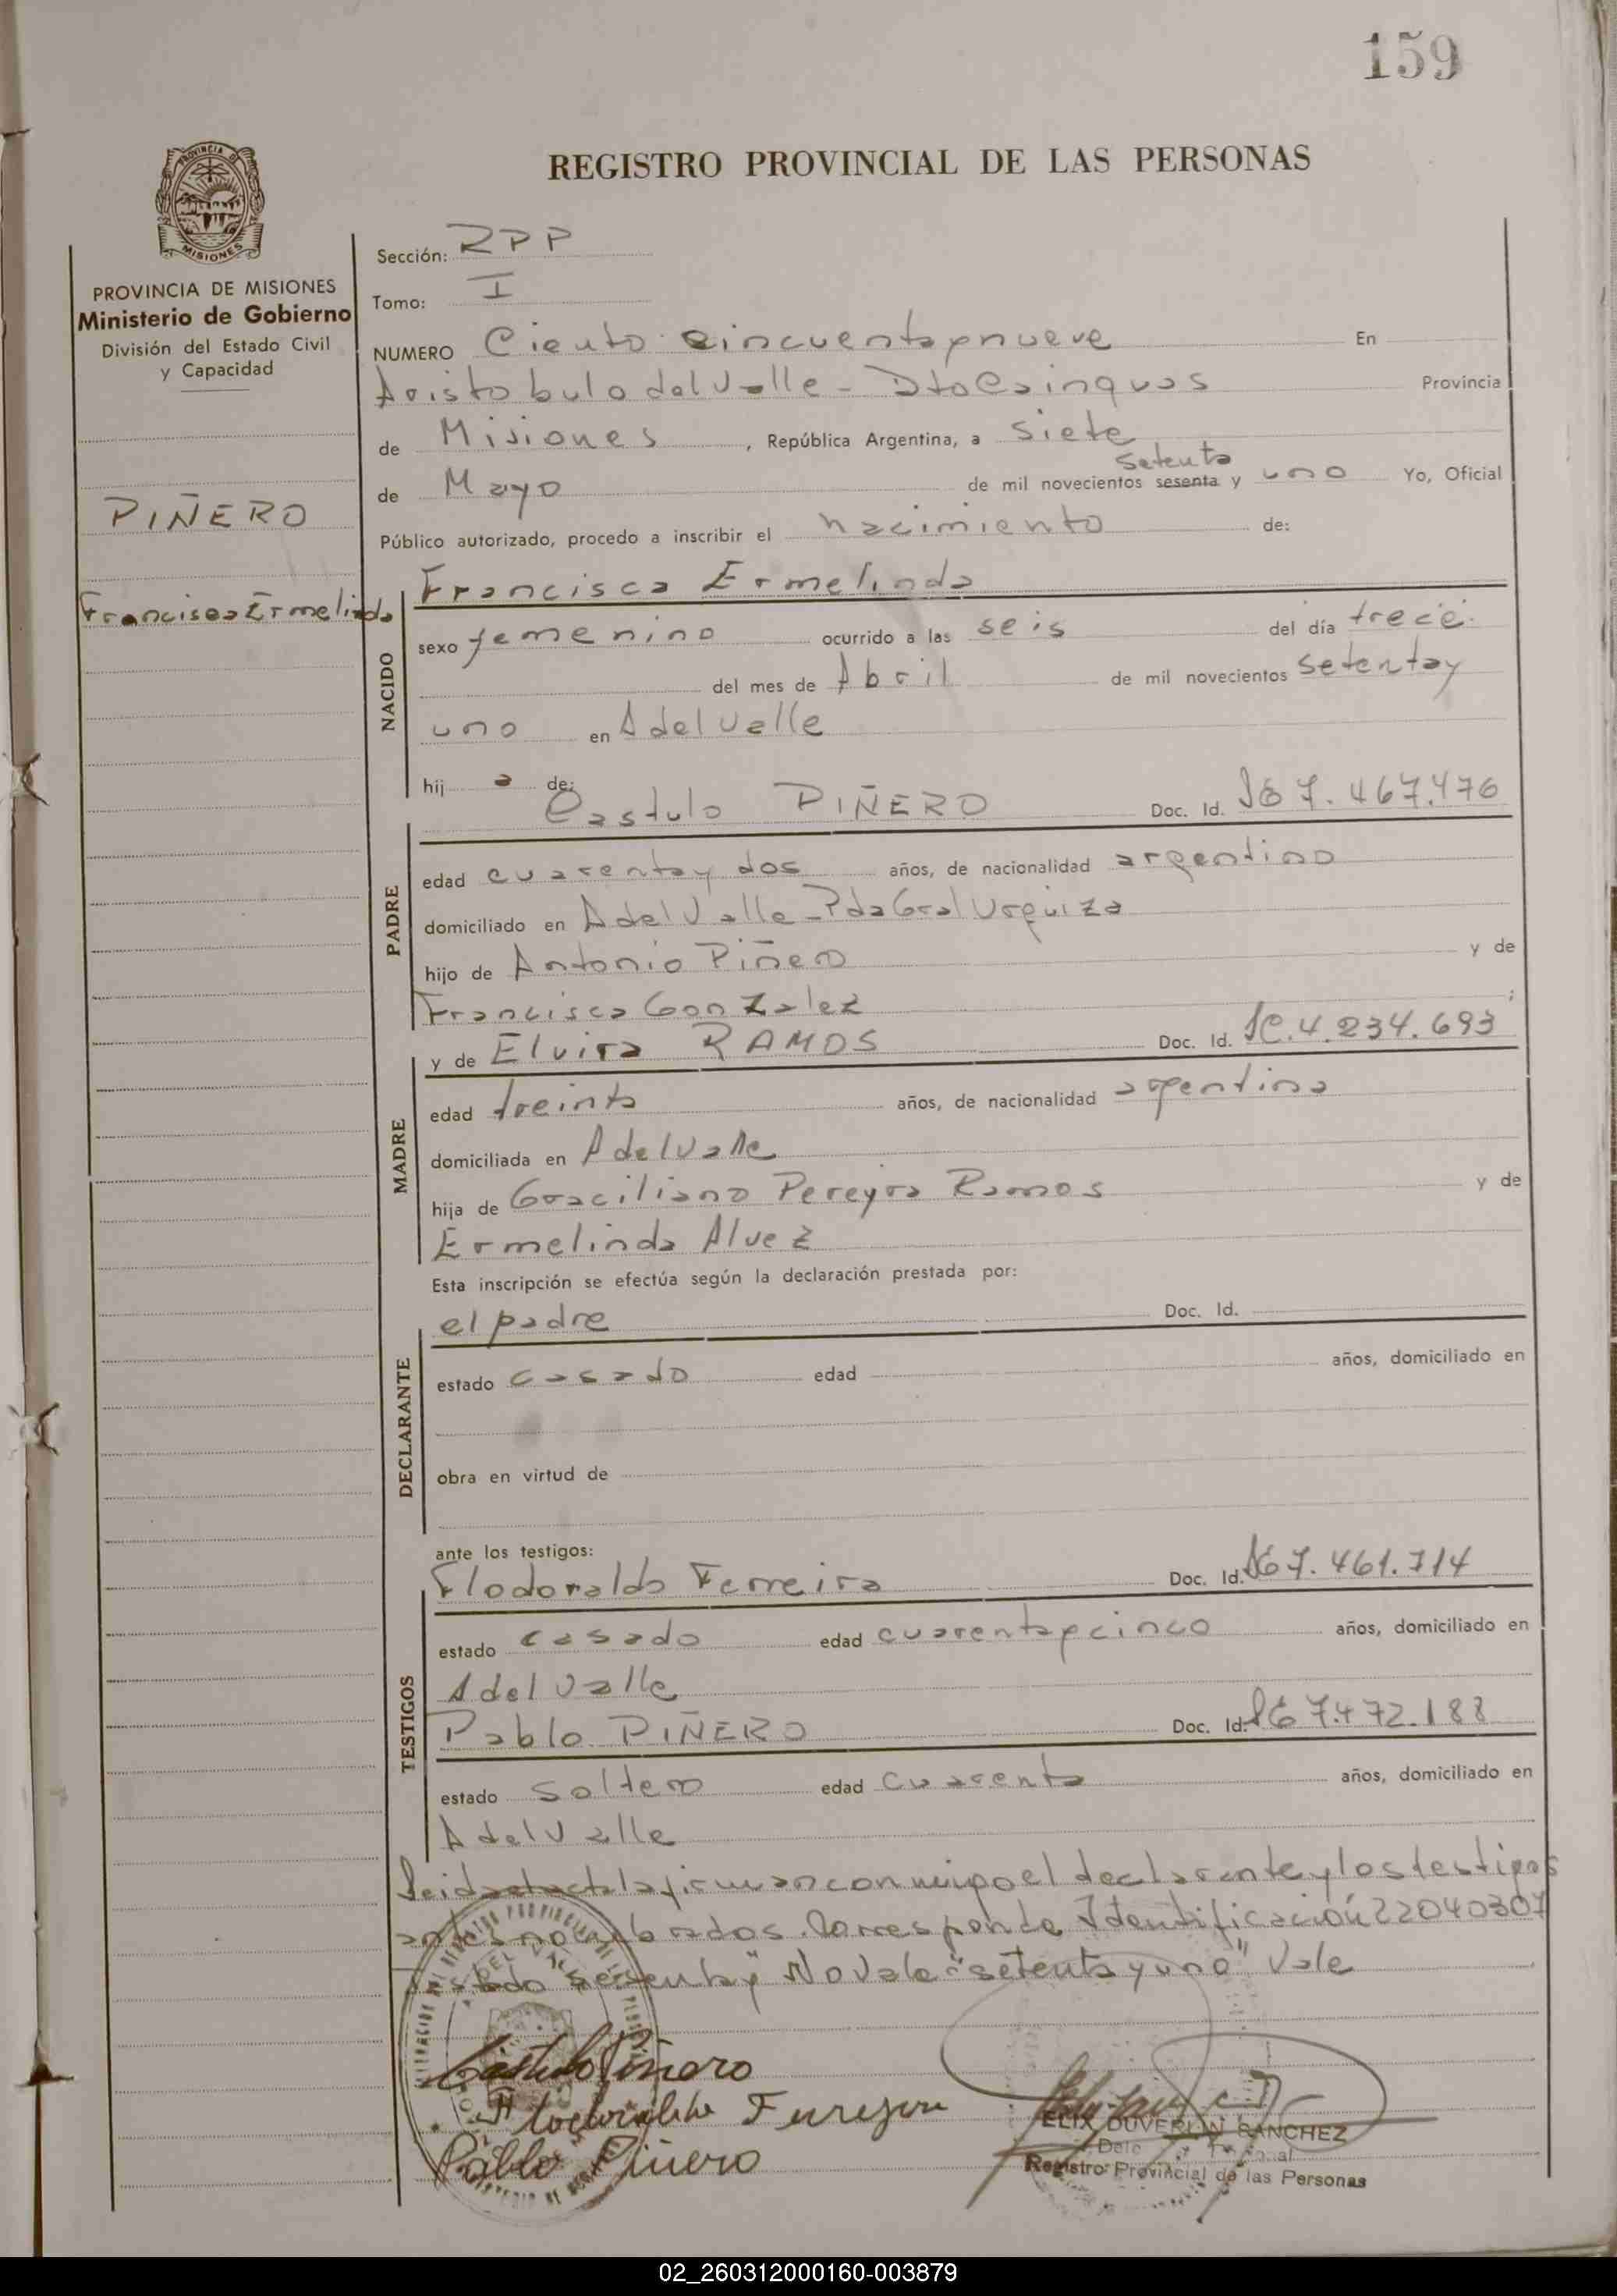 159
REGISTRO PROVINCIAL DE LAS PERSONAS
PROVINCIA DE MISIONES
Ministerio de Gobierno
División del Estado Civil
y Capacidad
PIÑERO
Francisca Ermelinda
Sección: RPP
Tomo: I
NUMERO Ciento cincuenta y nueve En
Aristobulo del Valle - Dto Cainguas Provincia
de Misiones, República Argentina, a siete
setenta
de Mayo de mil novecientos sesenta y uno Yo, Oficial
Público autorizado, procedo a inscribir el nacimiento de:
NACIDO
Francisca Ermelinda
sexo femenino ocurrido a las seis del día trece
del mes de Abril de mil novecientos setenta y
uno en A del Valle
hij a de:
Castulo PIÑERO Doc. Id. 7.467.476
PADRE
edad cuarenta y dos años, de nacionalidad argentino
domiciliado en A del Valle - Pda Gral Urquiza
hijo de Antonio Piñero y de
Francisca Gonzalez ;
y de Elvira RAMOS Doc. Id. 4.234.693
MADRE
edad treinta años, de nacionalidad argentina
domiciliada en A del Valle
hija de Graciliano Pereyra Ramos y de
Ermelinda Alvez
Esta inscripción se efectúa según la declaración prestada por:
el padre Doc. Id.
DECLARANTE
estado casado edad años, domiciliado en
obra en virtud de
ante los testigos:
Flodoraldo Ferreira Doc. Id. 7.461.714
TESTIGOS
estado casado edad cuarenta y cinco años, domiciliado en
A del Valle
Pablo PIÑERO Doc. Id. 7.472.188
estado soltero edad cuarenta años, domiciliado en
A del Valle
Leida el acta la firman conmigo el declarante y los testigos
antes nombrados. Corresponde Identificación 22040307
"sesenta y" No Vale "setenta y uno" Vale
Castulo Piñero
Pablo Piñero
ELIX DUVERLIN SANCHEZ
Registro Provincial de las Personas
02_260312000160-003879